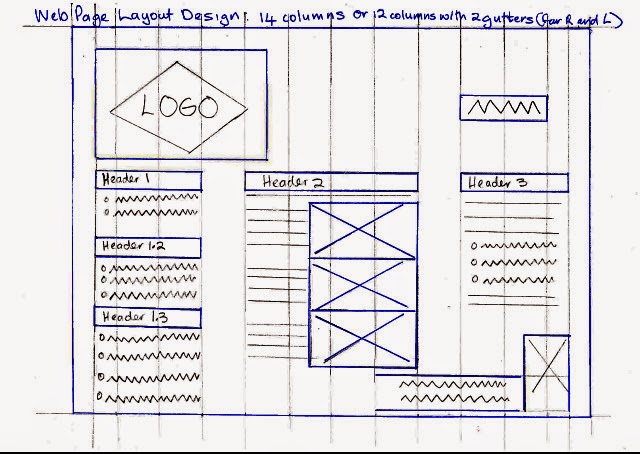 Web Page Layout Design: 14 columns or 12 columns with 2 gutters (far R and L)
LOGO
Header 1
Header 2
Header 3
Header 1.2
Header 1.3